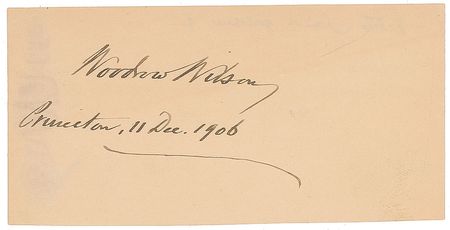 Woodrow Wilson
Princeton, 11 Dec. 1906